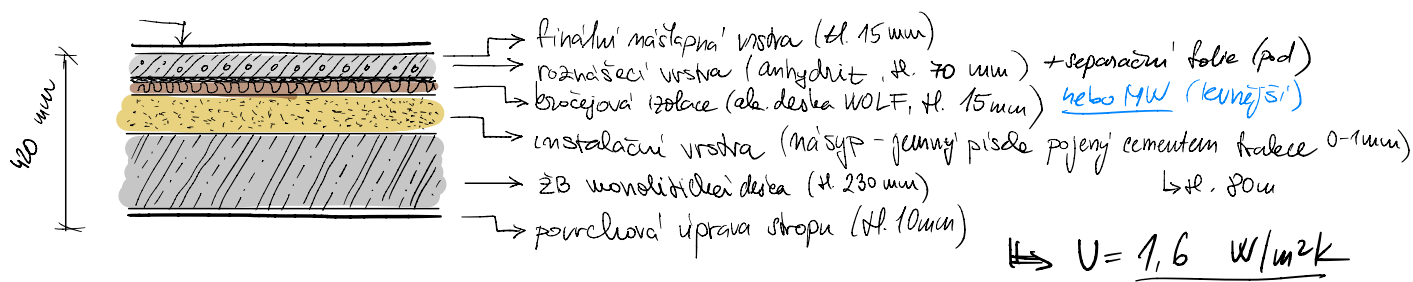 finální nášlapná vrstva (tl. 15 mm)
roznášecí vrstva (anhydrit, tl. 70 mm) + separační folie (pod)
kročejová izolace (ak. deska WOLF, tl. 15mm) nebo MW (levnější)
instalační vrstva (násyp - jemný písek pojený cementem frakce 0-1mm)
↳ tl. 80m
ŽB monolitická deska (tl. 230 mm)
povrchová úprava stropu (tl. 10mm)
U = 1,6 W/m²K
420 mm